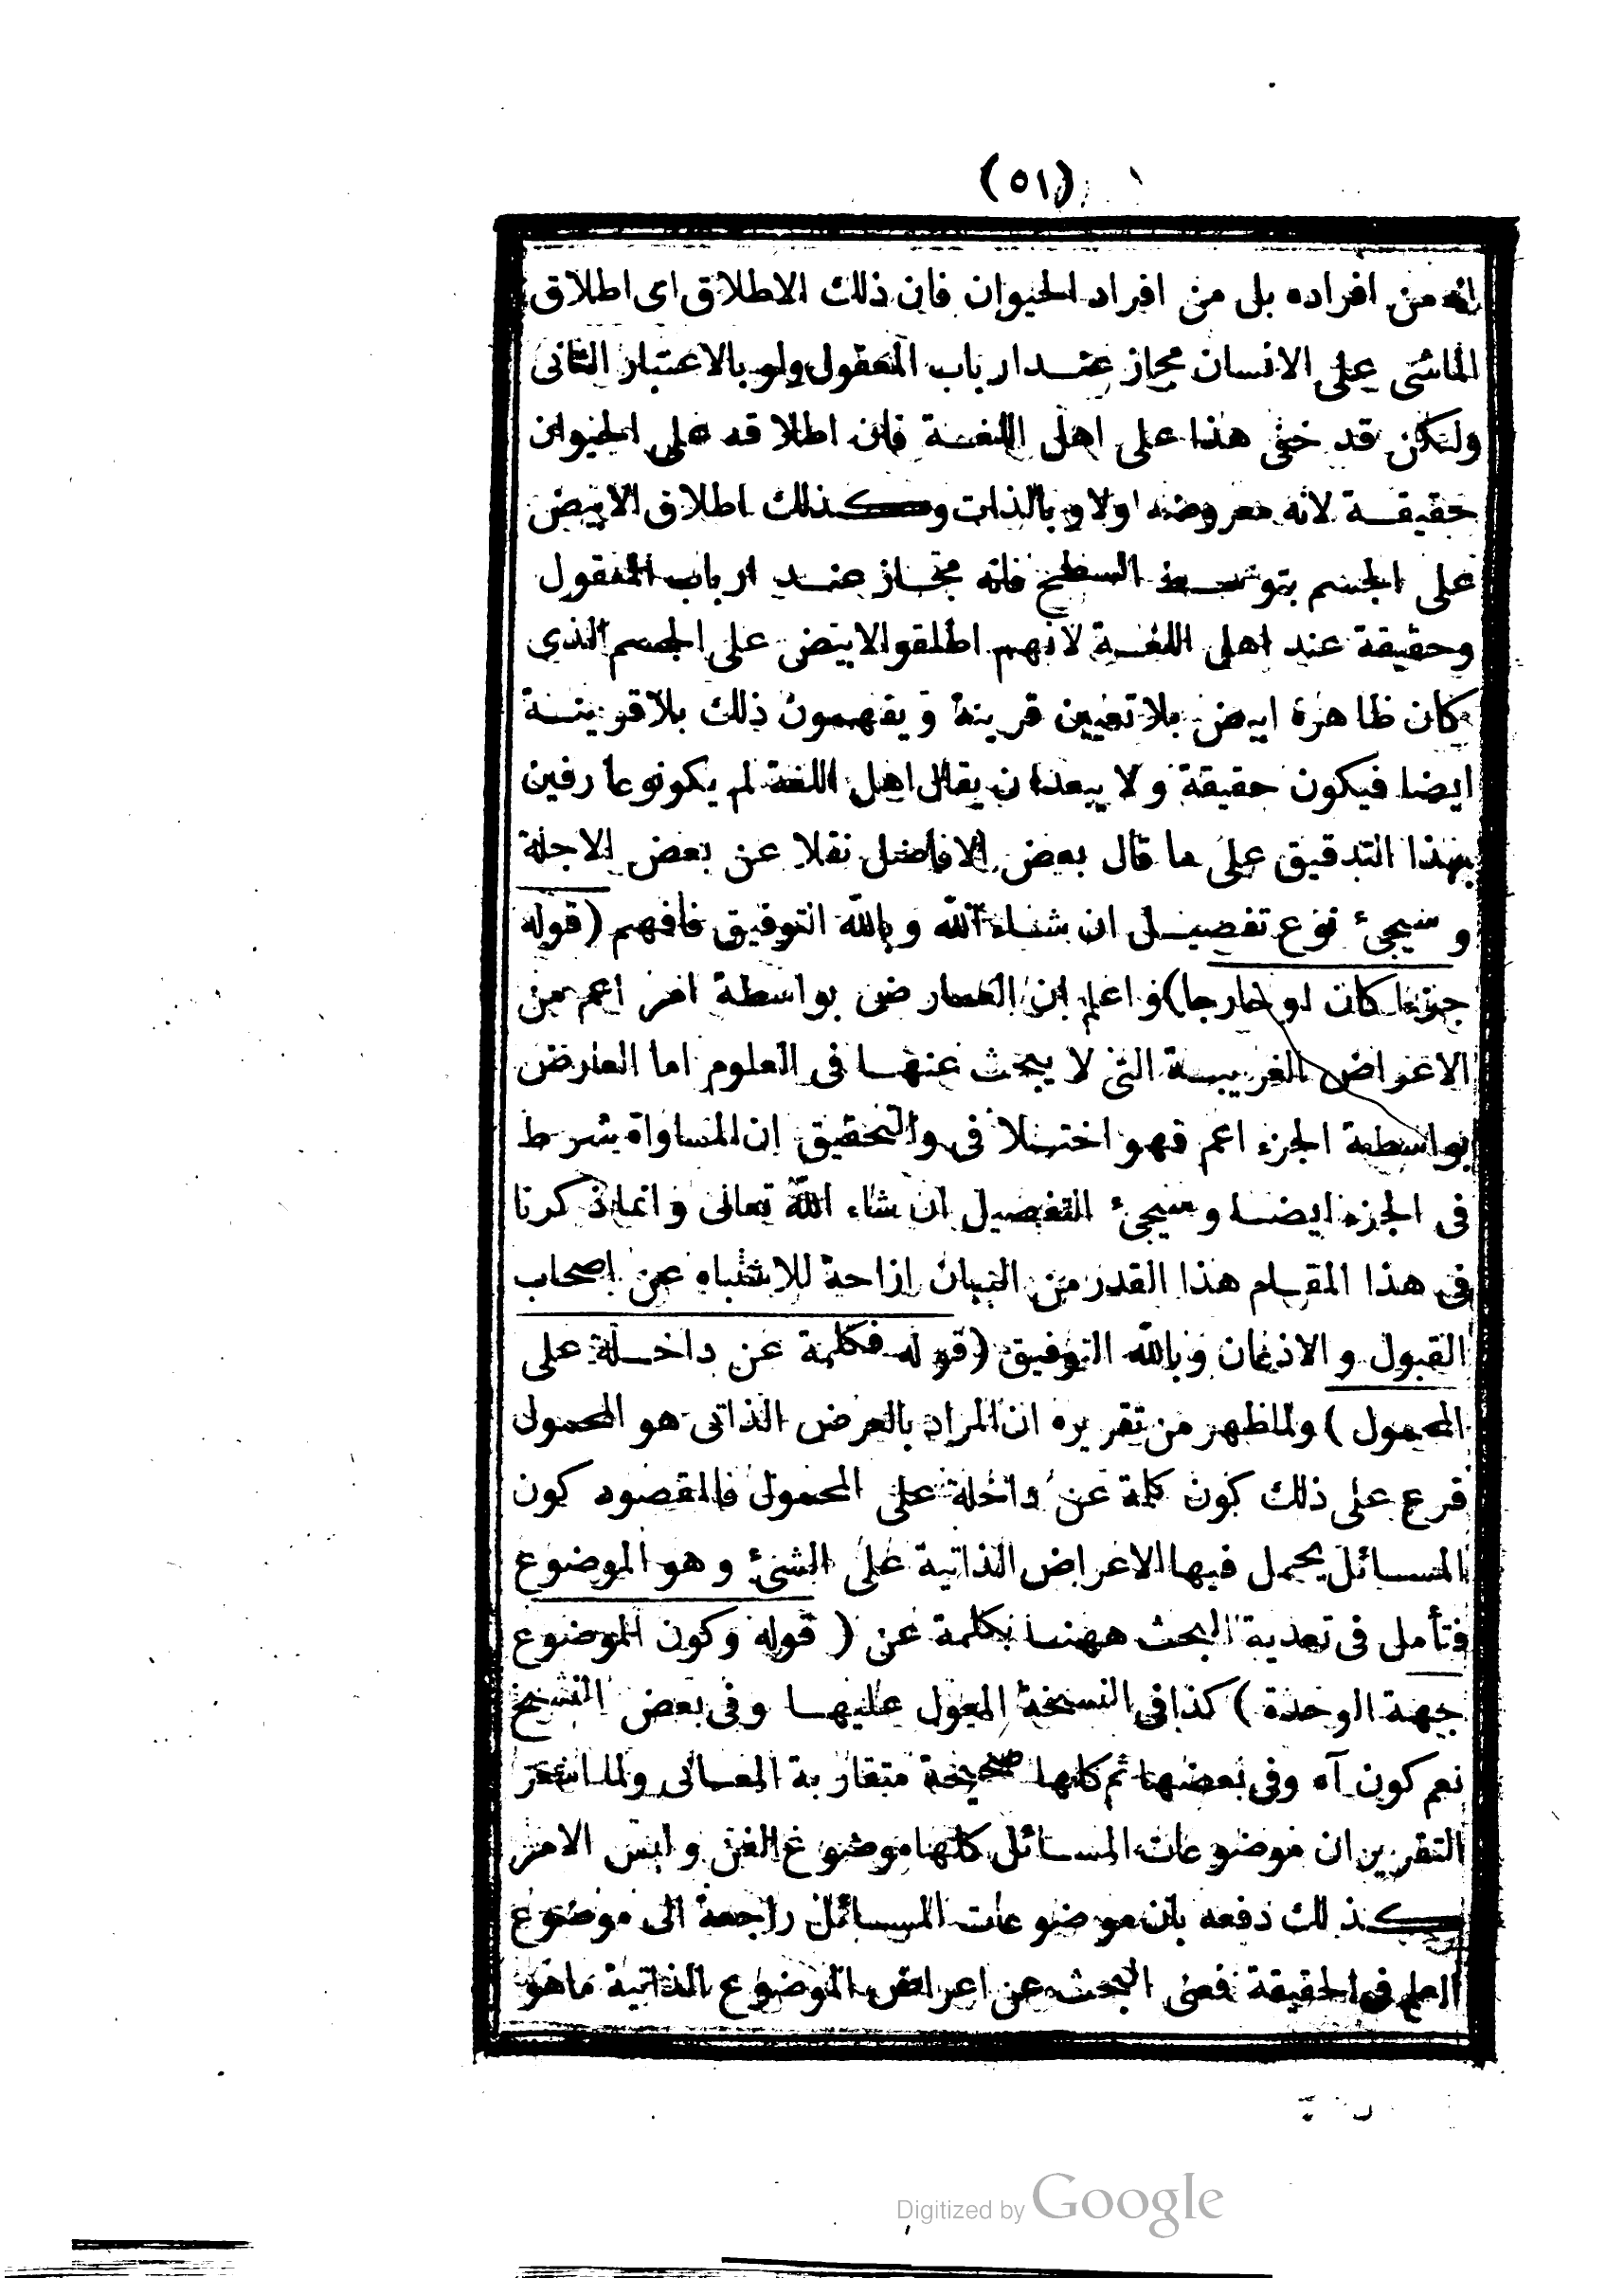 (٥١)
انه من افراده بل من افراد الحيوان فان ذلك الاطلاق اى اطلاق
الماشى على الانسان مجاز عند ارباب المعقول ولو بالاعتبار الثانى
ولكن قد خفى هذا على اهل اللغة فان اطلاقه على الحيوان
حقيقة لانه معروضه اولا وبالذات وكذلك اطلاق الابيض
على الجسم بتوسط السطح فانه مجاز عند ارباب المعقول
وحقيقة عند اهل اللغة لانهم اطلقوا الابيض على الجسم الذى
كان ظاهره ابيض بلا تعيين قرينة ويفهمون ذلك بلا قرينة
ايضا فيكون حقيقة ولا يبعد ان يقال اهل اللغة لم يكونوا عارفين
بهذا التدقيق على ما قال بعض الافاضل نقلا عن بعض الاجلة
وسيجئ نوع تفصيل ان شاء الله وبالله التوفيق فافهم (قوله
جزءا كان او خارجا) واعلم ان العارض بواسطة امر اعم من
الاعراض الغريبة التى لا يبحث عنها فى العلوم اما العارض
بواسطة الجزء اعم فهو اختلافى والتحقيق ان المساواة شرط
فى الجزء ايضا وسيجئ التفصيل ان شاء الله تعالى وانما ذكرنا
فى هذا المقام هذا القدر من البيان ازاحة للاشتباه عن اصحاب
القبول والاذعان وبالله التوفيق (قوله فكلمة عن داخلة على
المحمول) ولما ظهر من تقريره ان المراد بالعرض الذاتى هو المحمول
فرع على ذلك كون كلمة عن داخلة على المحمول فالمقصود كون
المسائل يحمل فيها الاعراض الذاتية على الشئ وهو الموضوع
فتأمل فى تعدية البحث ههنا بكلمة عن (قوله وكون الموضوع
جهة الوحدة) كذا فى النسخة المعول عليها وفى بعض النسخ
نعم كون آه وفى بعضها ثم كلها صحيحة متقاربة المعانى ولما اشعر
التقرير ان موضوعات المسائل كلها موضوع الفن وليس الامر
كذلك دفعه بان موضوعات المسائل راجعة الى موضوع
العلم فى الحقيقة فمعنى البحث عن اعراض الموضوع الذاتية ما هو
Digitized by Google